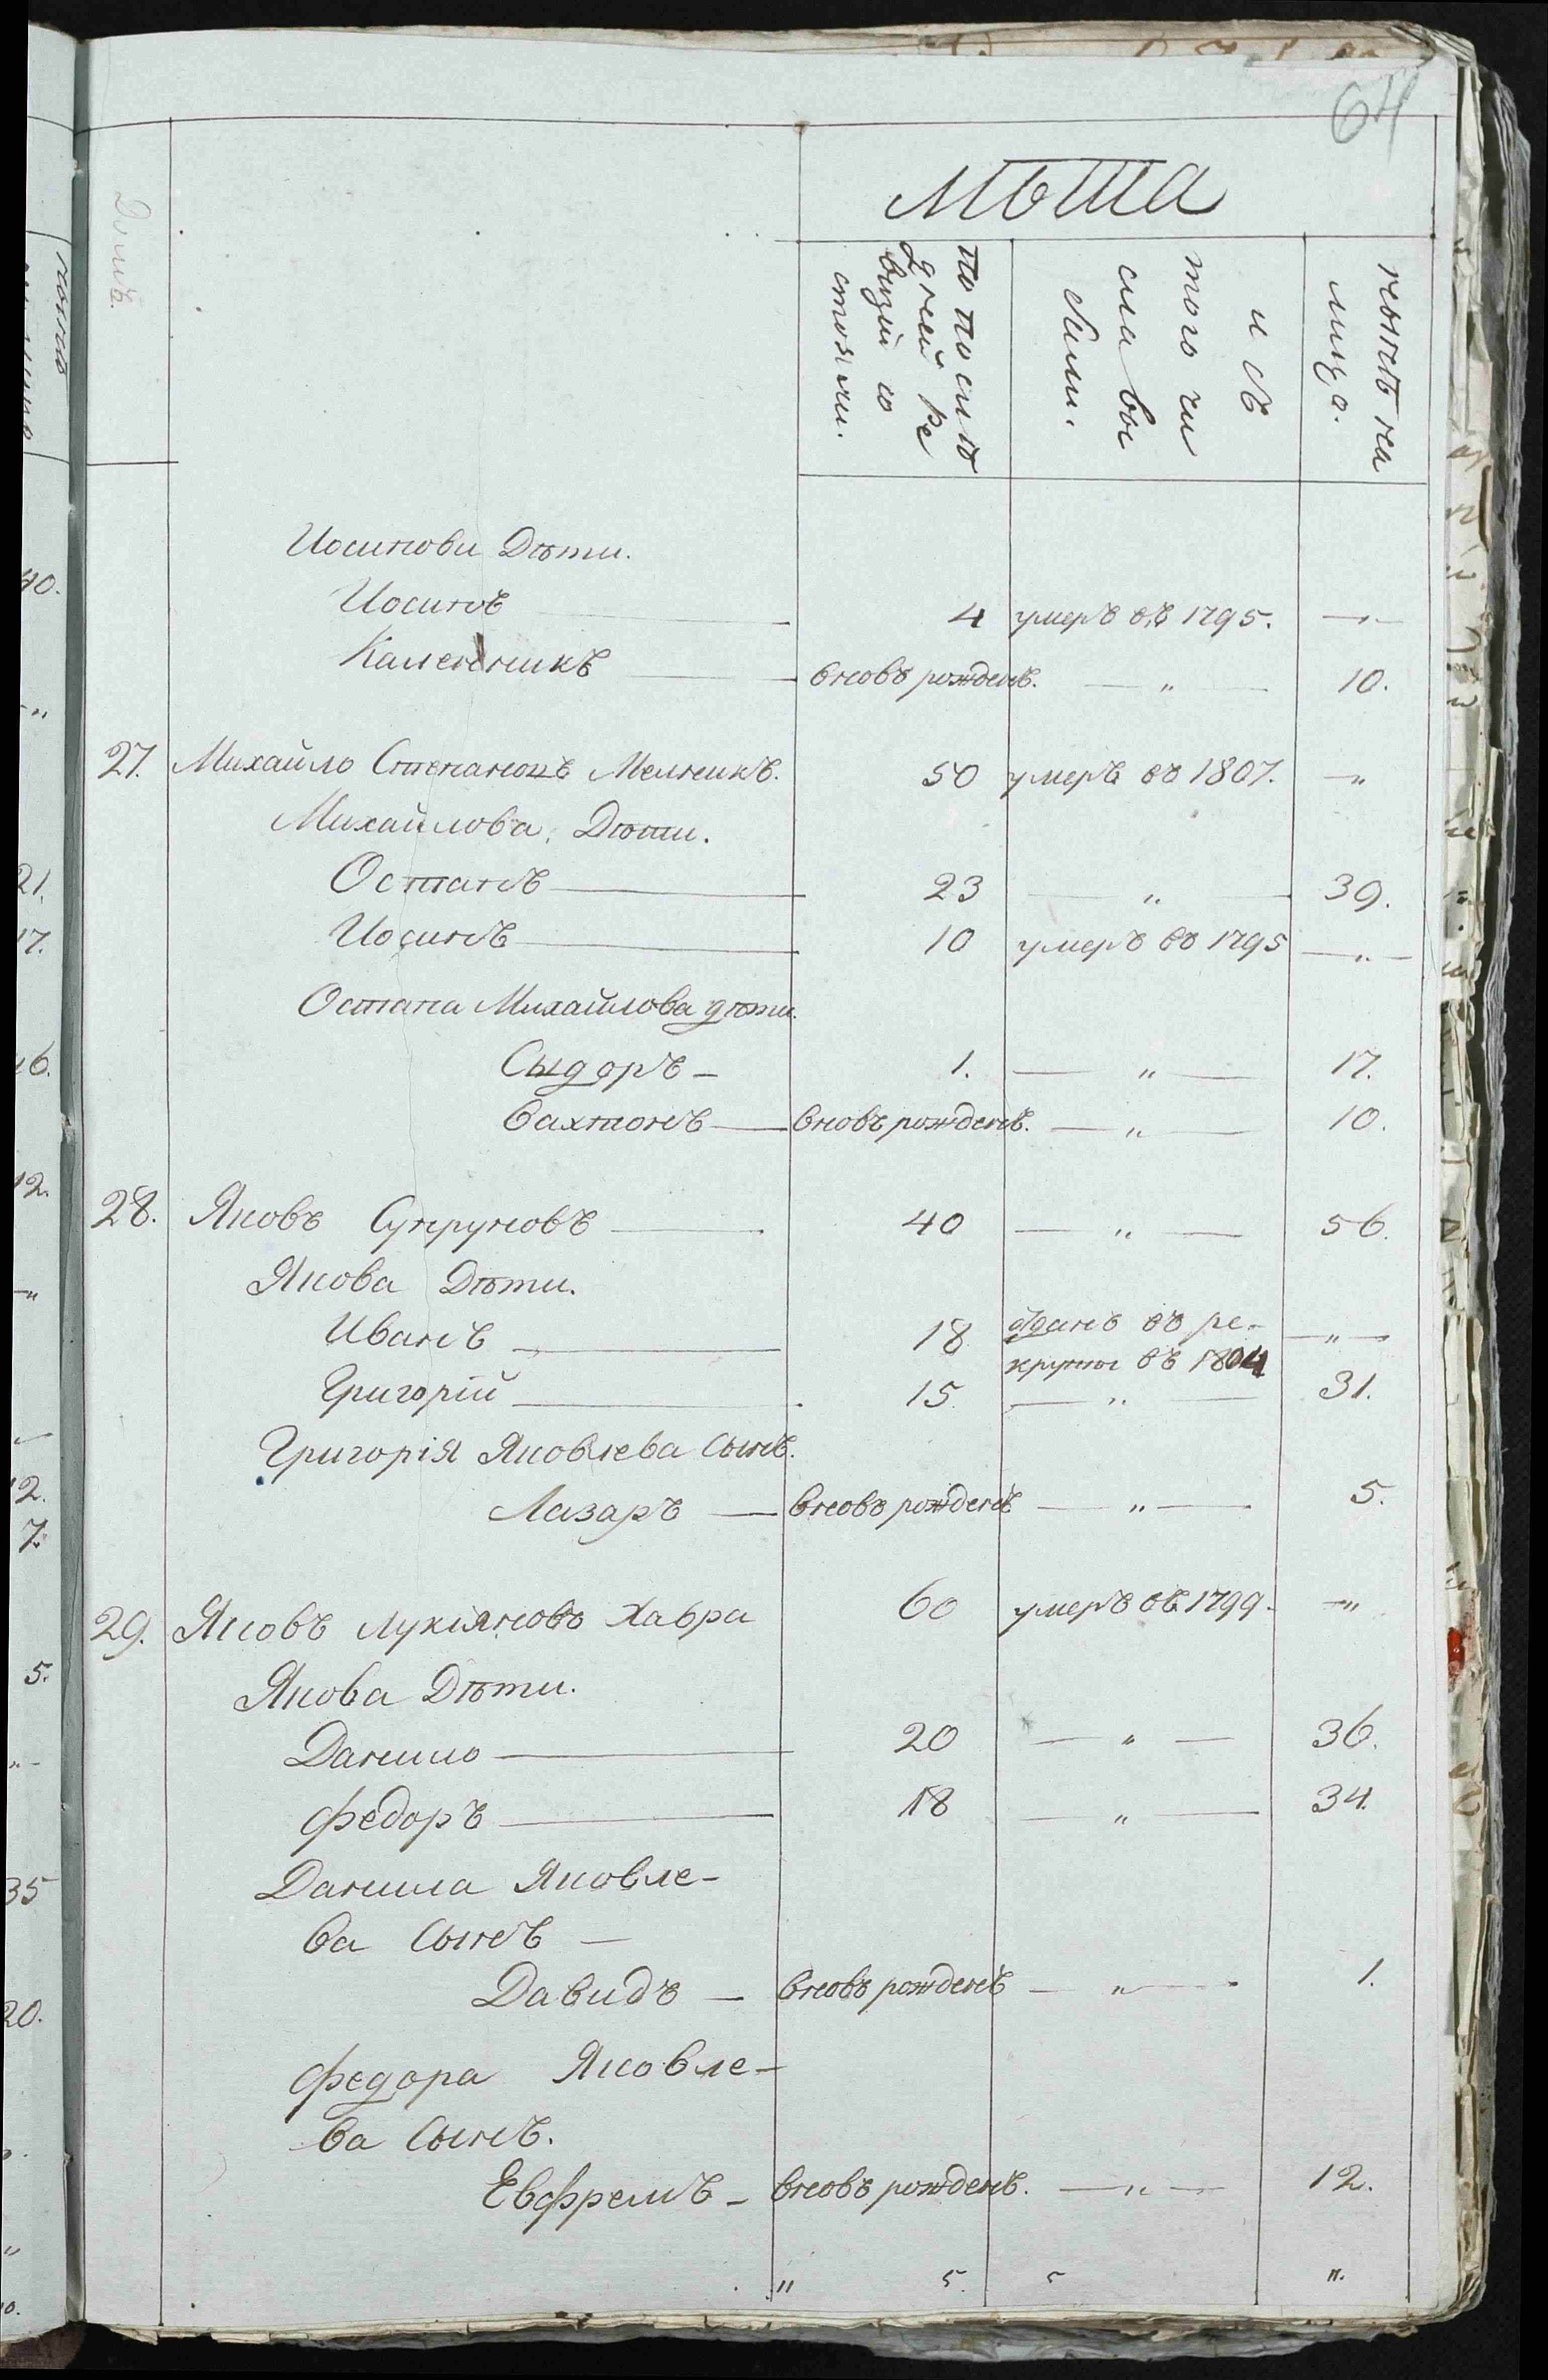 64
лѣта
Домъ.
по послѣ
дней ре
визіи со
стояли.
изъ
того чи
сла вы
были.
нынѣ на
лицо.
Иосипови Дѣти.
Иосипъ — 4 умеръ въ 1795. —
Калениикъ — вновь рожденъ. — „ — 10.
27. Михайло Степановъ Мелникъ. 50 умеръ въ 1807. — „
Михайлова Дѣти.
Остапъ — 23 — „ — 39.
Иосипъ — 10 умеръ въ 1795 — „ —
Остапа Михайлова дѣти.
Сыдоръ — 1. — „ — 17.
Вахтонъ — вновь рожденъ. — „ — 10.
28. Яковъ Супруновъ — 40 — „ — 56.
Якова Дѣти.
Иванъ — 18 отданъ въ ре- — „ —
круты въ 1804
Григорій — 15. — „ — 31.
Григорія Яковлева сынъ.
Лазаръ — вновь рожденъ — „ — 5.
29. Яковъ Лукіяновъ Хавра 60 умеръ въ 1799. — „
Якова Дѣти.
Данило — 20 — „ — 36.
Федоръ — 18 — „ — 34.
Данила Яковле-
ва сынъ —
Давидъ — вновь рожденъ — „ — 1.
Федора Яковле-
ва сынъ.
Евфремъ — вновь рожденъ. — „ — 12.
„ 5. 5 11.